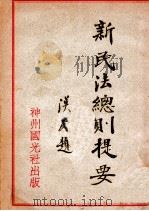 新民法總則提要
漢民題
神州國光社出版